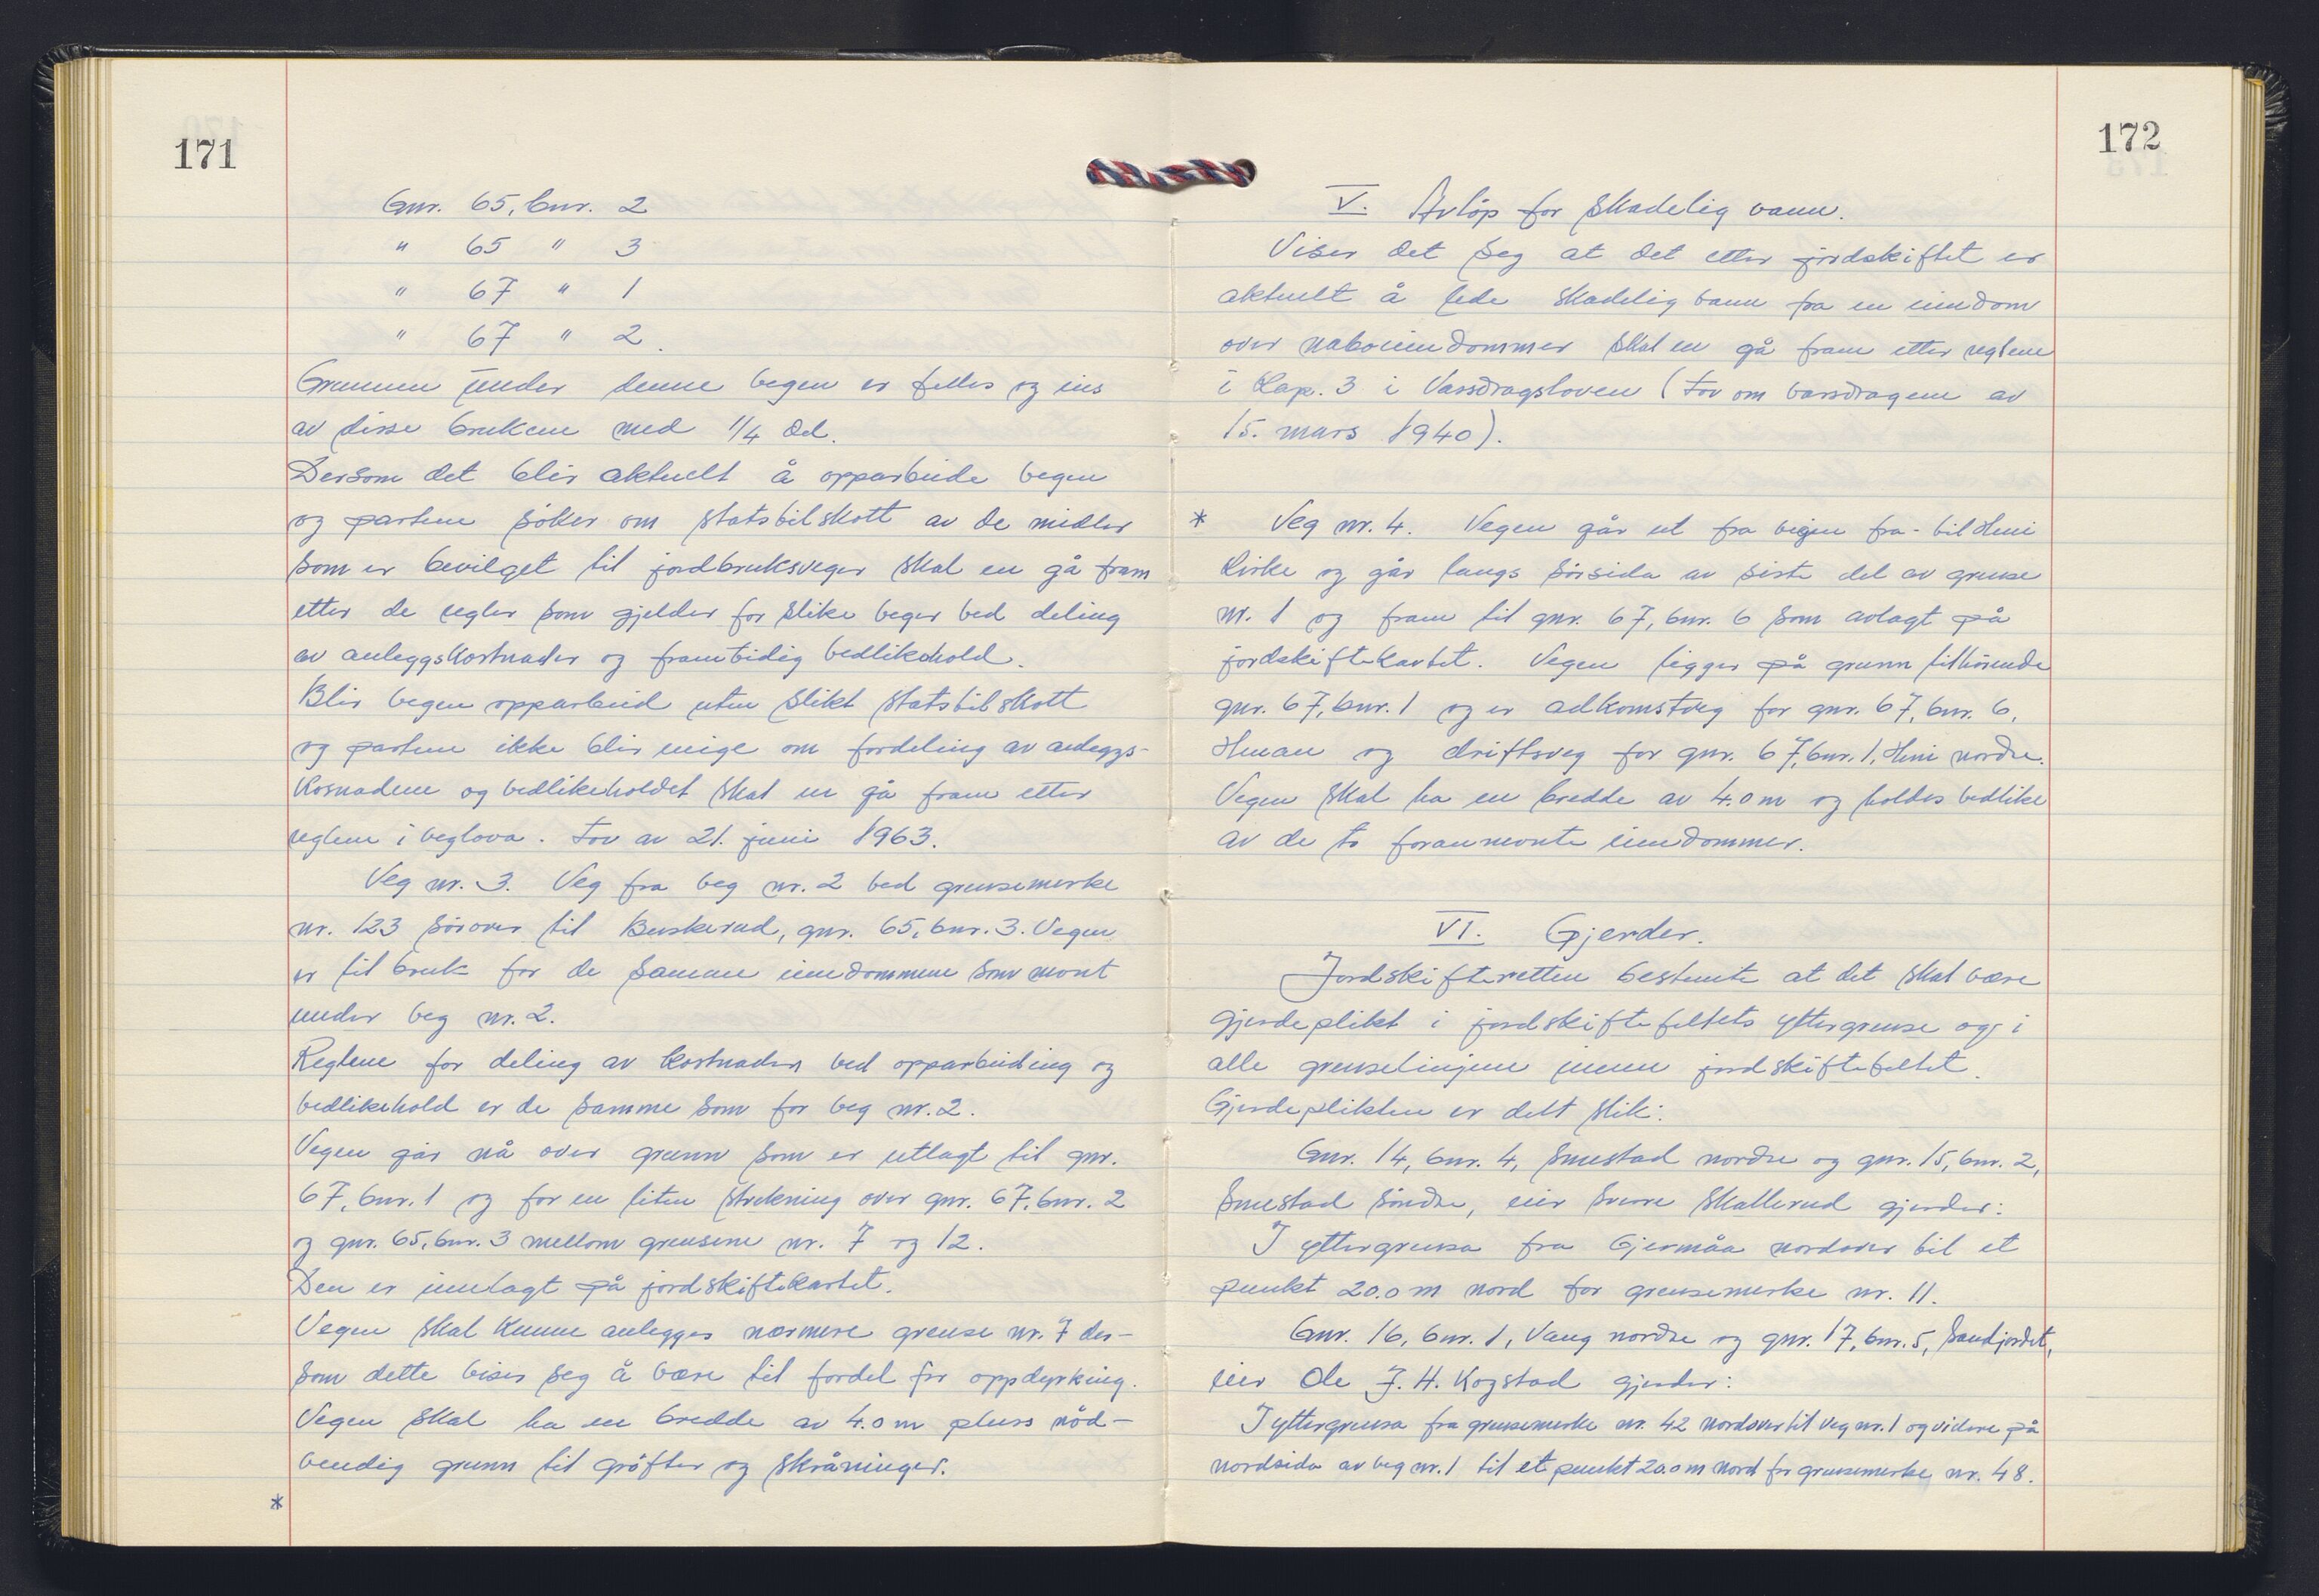 171
Gnr. 65, bnr. 2
" 65 " 3
" 67 " 1
" 67 " 2.
Grunnen under denne vegen er felles og eies
av disse brukene med 1/4 del.
Dersom det blir aktuelt å opparbeide vegen
og partene søker om statstilskott av de midler
som er bevilget til jordbruksveger skal en gå fram
etter de regler som gjelder for slike veger ved deling
av anleggskostnader og framtidig vedlikehold.
Blir vegen opparbeid uten slikt statstilskott
og partene ikke blir enige om fordeling av anleggs-
kosnadene og vedlikeholdet skal en gå fram etter
reglene i veglova. Lov av 21. juni 1963.
Veg nr. 3. Veg fra veg nr. 2 ved grensemerke
nr. 123 sørover til Buskerud, gnr. 65, bnr. 3. Vegen
er til bruk for de samme eiendommene som nevnt
under veg nr. 2.
Reglene for deling av kostnaden ved opparbeiding og
vedlikehold er de samme som for veg nr. 2.
Vegen går nå over grunn som er utlagt til gnr.
67, bnr. 1 og for en liten strekning over gnr. 67, bnr. 2
og gnr. 65, bnr. 3 mellom grensene nr. 7 og 12.
Den er innlagt på jordskiftekartet.
Vegen skal kunne anlegges nærmere grense nr. 7 der-
som dette viser seg å være til fordel for oppdyrking.
Vegen skal ha en bredde av 4.0 m pluss nød-
vendig grunn til grøfter og skråninger.
*
172
V. Avløp for skadelig vann.
Viser det seg at det etter jordskiftet er
aktuelt å lede skadelig vann fra en eiendom
over naboeiendommer skal en gå fram etter reglene
i kap. 3 i Vassdragsloven (Lov om vassdragene av
15. mars 1940).
* Veg nr. 4. Vegen går ut fra vegen fra - til Heni
kirke og går langs sørsida av siste del av grense
nr. 1 og fram til gnr. 67, bnr. 6 som avlagt på
jordskiftekartet. Vegen ligger på grunn tilhørende
gnr. 67, bnr. 1 og er adkomstveg for gnr. 67, bnr. 6,
og driftsveg for gnr. 67, bnr. 1, Heni nordre.
Vegen skal ha en bredde av 4.0 m og holdes vedlike
av de to forannevnte eiendommer.
VI. Gjerder.
Jordskifteretten bestemte at det skal være
gjerdeplikt i jordskiftefeltets yttergrense og i
alle grenselinjene innen jordskiftefeltet.
Gjerdeplikten er delt slik:
Gnr. 14, bnr. 4, Smestad nordre og gnr. 15, bnr. 2,
Smestad søndre, eier Sverre Skallerud gjerder:
I yttergrensa fra Gjermåa nordover til et
punkt 20.0 m nord for grensemerke nr. 11.
Gnr. 16, bnr. 1, Vaug nordre og gnr. 17, bnr. 5, Sandjordet,
eier Ole J. H. Kogstad gjerder:
I yttergrensa fra grensemerke nr. 42 nordover til veg nr. 1 og videre på
nordsida av veg nr. 1 til et punkt 20.0 m nord for grensemerke nr. 48.